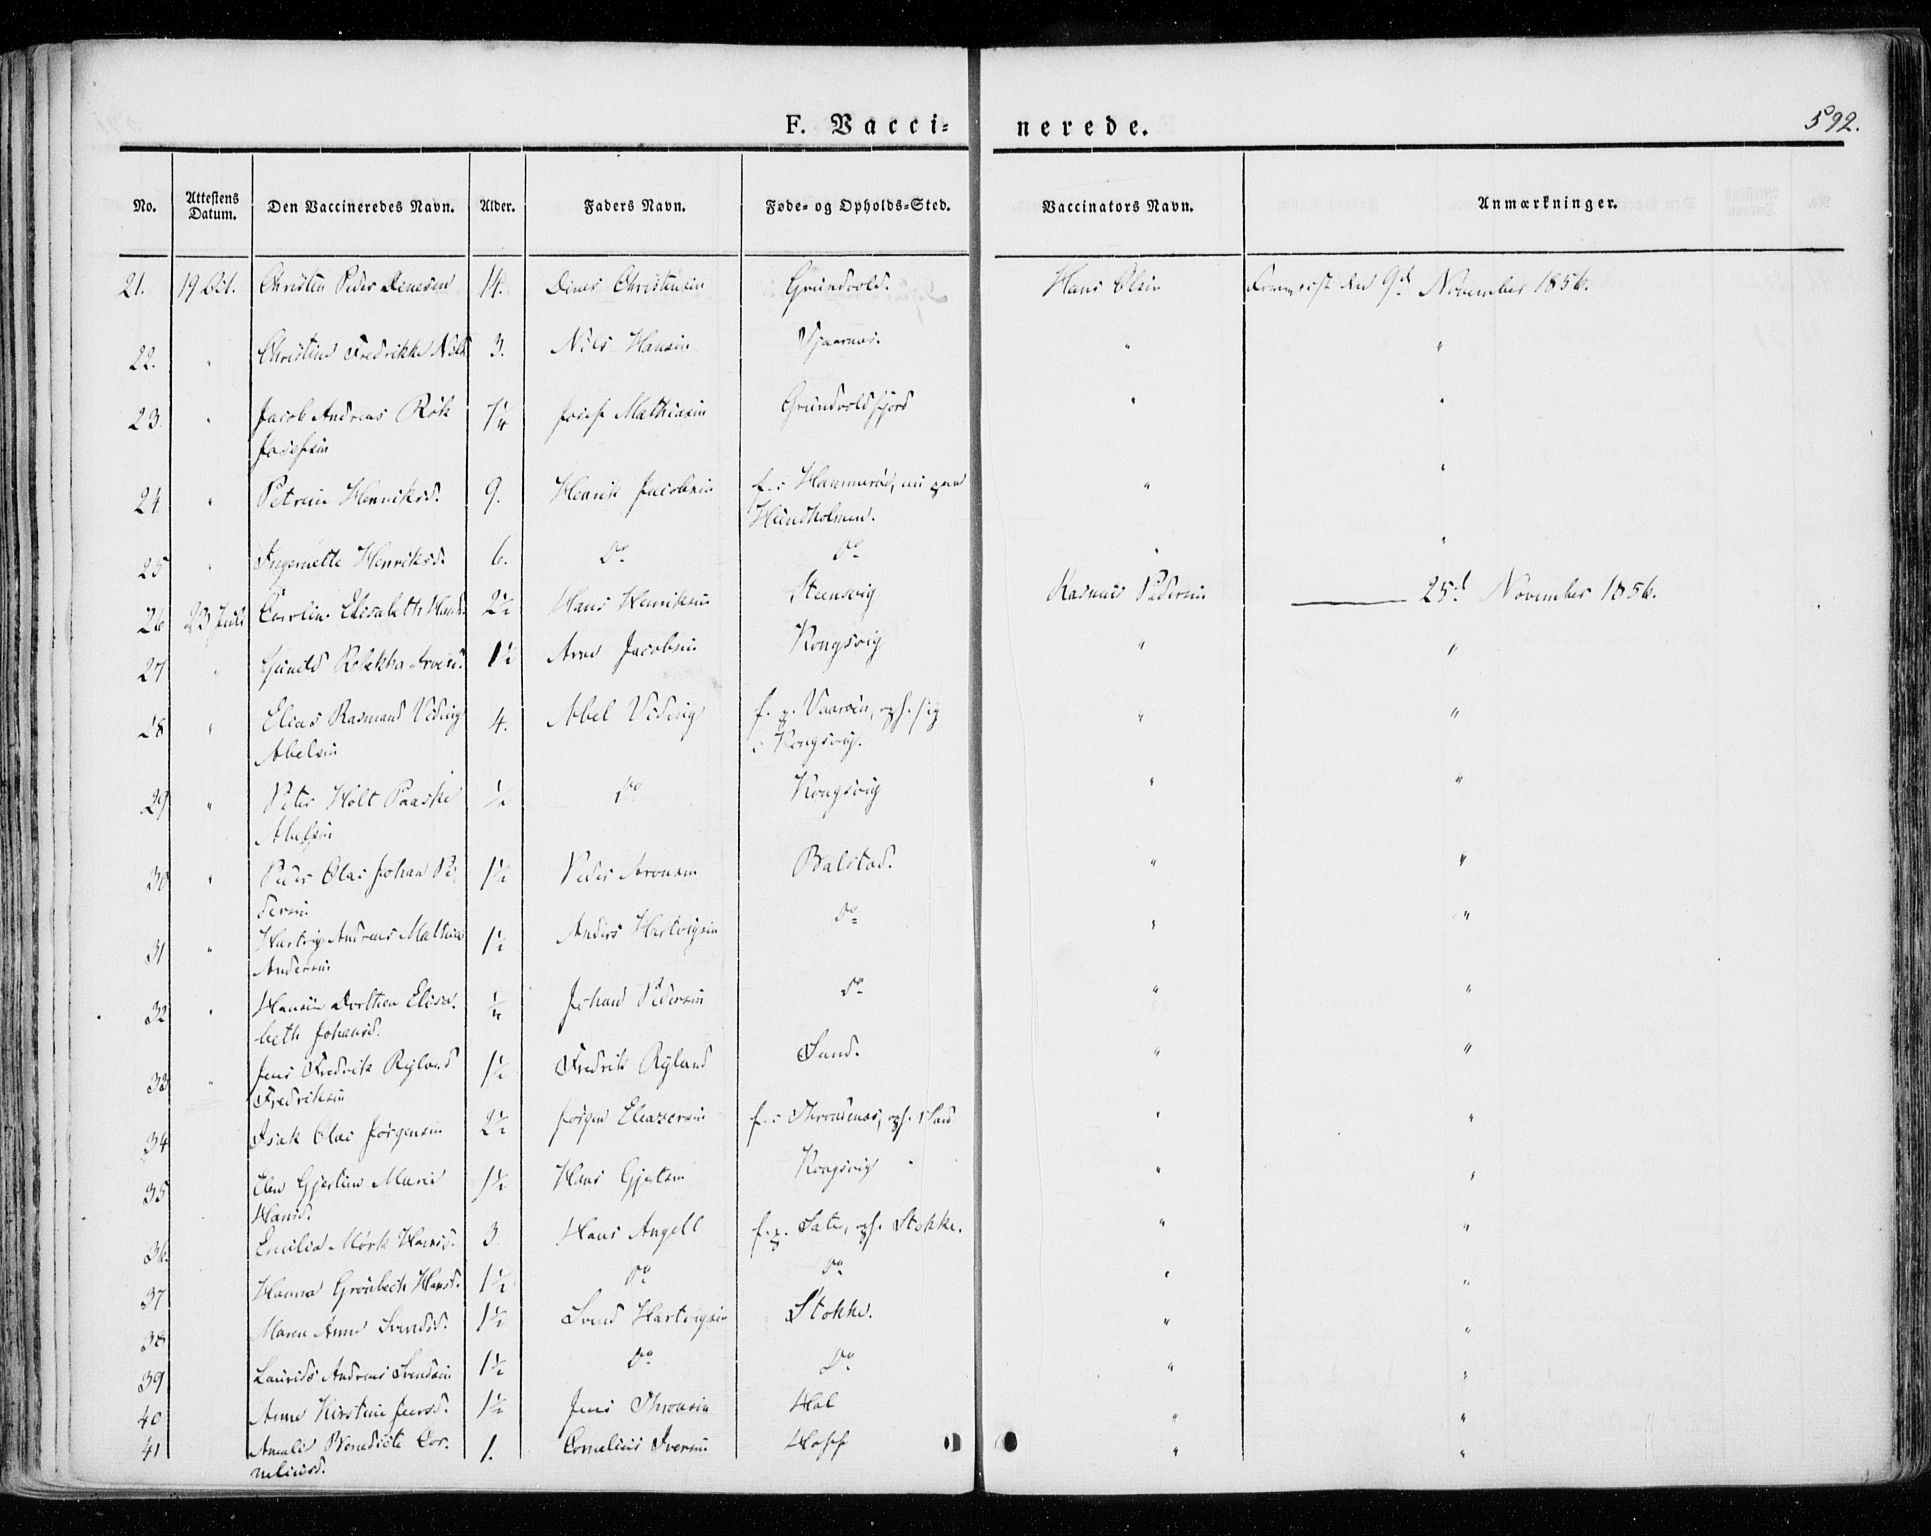 F. Vacci-
nerede.
592.
No.
Attestens Datum.
Den Vaccineredes Navn.
Alder.
Faders Navn.
Føde- og Opholds-Sted.
Vaccinators Navn.
Anmærkninger.
21. 19 Oct. Christen Peder 14. Christensen Hans Olsen den 9de November 1856.
22. " Christine Fredrikke 3. Niels Hansen " "
23. " Jacob Andreas Røk Josef Mathiasen " "
Josefsen
24 " Petrine Henriksd. 9. Henrik Jacobsen f. i Hammerød, nu paa " "
Hundholmen.
25 " Henriksd. 6. Do Do " "
26 23 Juli Elisabeth Hansd. 2½ Hans Henriksen Steensvig Rasmus Pedersen ——— 25d November 1856.
27 " Rebekka 1½ Arne Jacobsen Kongsvig " "
28 " Elias Rasmus Viding 4. Abel Viding f. p. oph. sig " "
Abelsen i Kongsvig.
29 " Peter Holt Paaske ½ Do Kongsvig " "
Abelsen
30 " Peder Olai Johan Pe- 1½ Peder Aronsen Balstad. " "
dersen
31 " Hartvig Andreas Mathias 1½ Anders Hartvigsen Do " "
Andersen
32 " Dorthea Elisa- Johan Pedersen Do " "
beth Johansd.
33 " Jens Fredrik Ryland 1½ Fredrik Ryland Sund. " "
Fredriksen
34 Isak Olai Jørgensen 2½ Jørgen Eleazersen f. i Throndenæs, oph. i " "
35 Elen Gjertine Marie 1½ Hans Gjertsen Kongsvig " "
Hansd.
36. Emilie Mørk Hansd. 3. Hans Angell f. p. oph. Stokke. " "
37 Hanna Grønbech Hansd. 1½ Do Do " "
38 Maren Anne Svendsd. 1½ Svend Hartvigsen Stokke. " "
39 Laurids Andreas Svendsen 1½ Do Do " "
40 Anne Kirstine Jensd. 1½ Jens Thronsen Hol " "
41 Amalie Benedicte Cor- 1. Cornelius Iversen Hoff " "
neliusd.